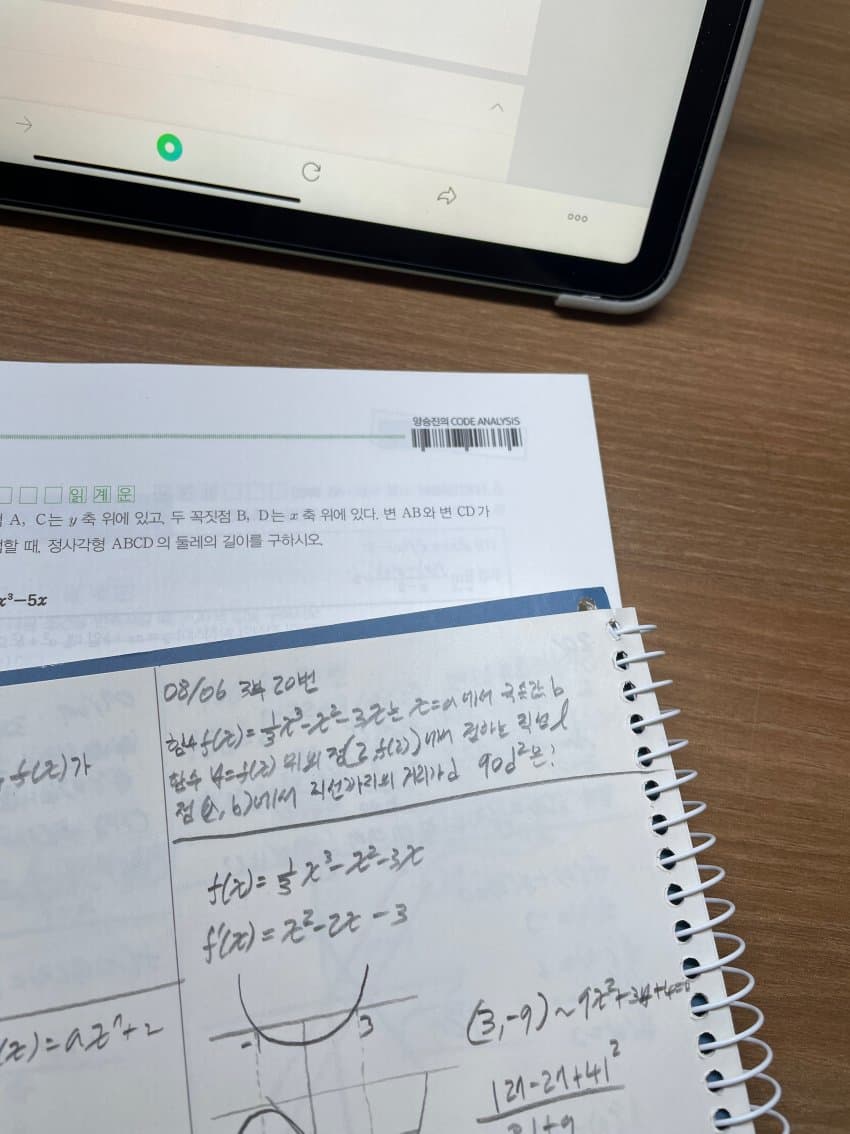 양승진의 CODE ANALYSIS
읽 계 운
A, C는 y 축 위에 있고, 두 꼭짓점 B, D는 x 축 위에 있다. 변 AB와 변 CD가
할 때, 정사각형 ABCD의 둘레의 길이를 구하시오.
x³-5x
08/06 3부 20번
함수 f(x)=1/3x³-x²-3x는 x=a에서 극솟값 b
함수 y=f(x) 위의 점(2, f(2))에서 접하는 직선 l
점(a, b)에서 직선까지의 거리가 d 90d²은?
, f(x)가
f(x)=1/3x³-x²-3x
f'(x)=x²-2x-3
-1 3
(3,-9) ~ 9x
(x)=ax+2
|27-27+4|²